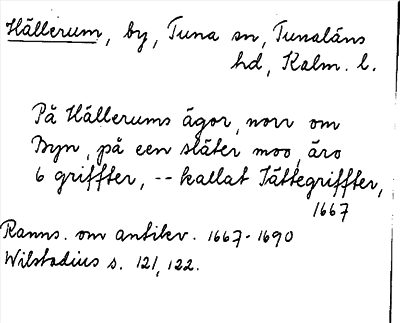 Hällerum, by, Tuna sn, Tunaläns
hd, Kalm. l.
På Hällerums ägor, norr om
Byn, på een släter moo, äro
6 griffter, -- kallat Jättegriffter,
1667
Ranns. om antikv. 1667-1690
Wilstadius s. 121, 122.